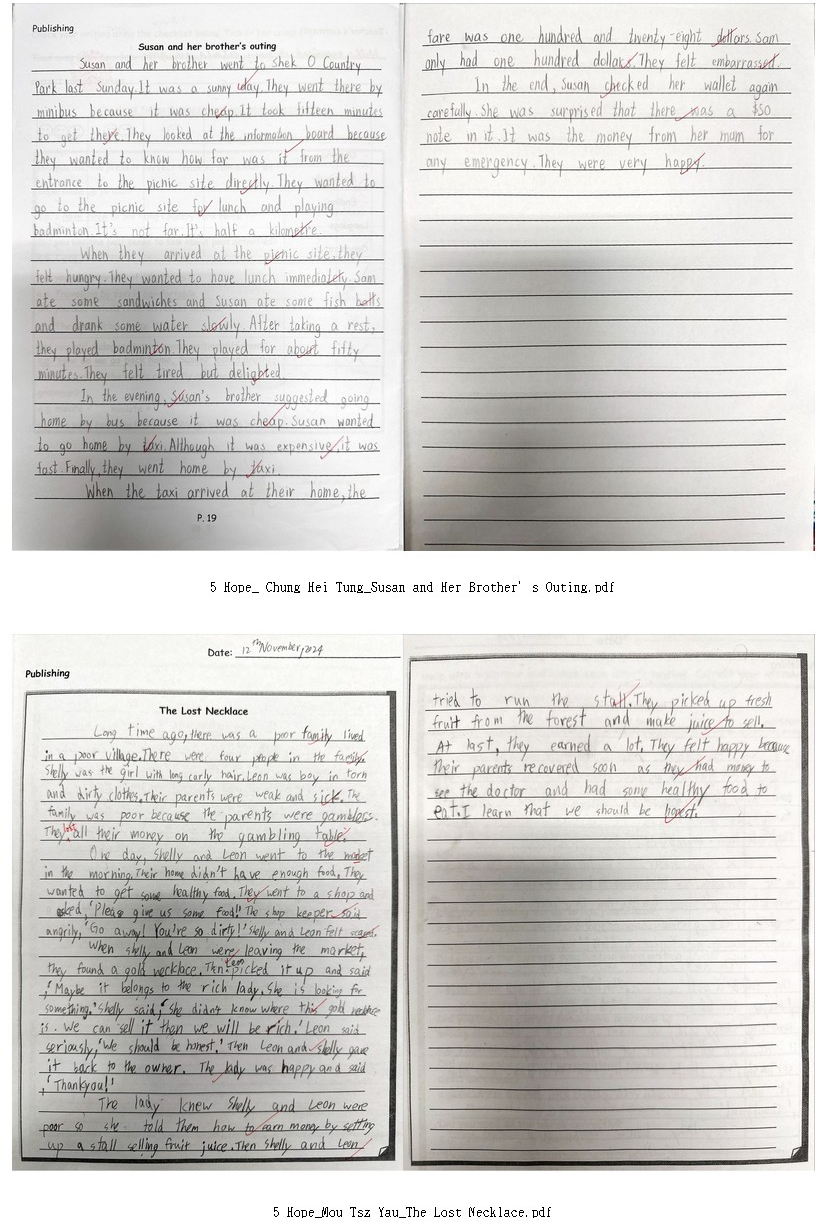 Publishing
Susan and her brother's outing
Susan and her brother went to Shek O Country
Park last Sunday. It was a sunny day. They went there by
minibus because it was cheap. It took fifteen minutes
to get there. They looked at the information board because
they wanted to know how far was it from the
entrance to the picnic site directly. They wanted to
go to the picnic site for lunch and playing
badminton. It's not far. It's half a kilometre.
When they arrived at the picnic site, they
felt hungry. They wanted to have lunch immediately. Sam
ate some sandwiches and Susan ate some fish balls
and drank some water slowly. After taking a rest,
they played badminton. They played for about fifty
minutes. They felt tired but delighted.
In the evening, Susan's brother suggested going
home by bus because it was cheap. Susan wanted
to go home by taxi. Although it was expensive, it was
fast. Finally, they went home by taxi.
When the taxi arrived at their home, the
P. 19
fare was one hundred and twenty-eight dollars. Sam
only had one hundred dollars. They felt embarrassed.
In the end, Susan checked her wallet again
carefully. She was surprised that there was a $50
note in it. It was the money from her mum for
any emergency. They were very happy.
5 Hope_ Chung Hei Tung_Susan and Her Brother's Outing.pdf
Date: 12th November, 2024
Publishing
The Lost Necklace
Long time ago, there was a poor family lived
in a poor village. There were four people in the family.
Shelly was the girl with long curly hair. Leon was boy in torn
and dirty clothes. Their parents were weak and sick. The
family was poor because the parents were gamblers.
They lost all their money on the gambling table.
One day, Shelly and Leon went to the market
in the morning. Their home didn't have enough food. They
wanted to get some healthy food. They went to a shop and
asked, 'Please give us some food!' The shop keeper said
angrily, 'Go away! You're so dirty!' Shelly and Leon felt scared.
When Shelly and Leon were leaving the market,
they found a gold necklace. Then Leon picked it up and said
, 'Maybe it belongs to the rich lady. She is looking for
something.' Shelly said, 'She didn't know where this gold necklace
is. We can sell it then we will be rich.' Leon said
seriously, 'We should be honest.' Then Leon and Shelly gave
it back to the owner. The lady was happy and said
, 'Thankyou!'
The lady knew Shelly and Leon were
poor so she told them how to earn money by setting
up a stall selling fruit juice. Then Shelly and Leon
tried to run the stall. They picked up fresh
fruit from the forest and make juice to sell.
At last, they earned a lot. They felt happy because
their parents recovered soon as they had money to
see the doctor and had some healthy food to
eat. I learn that we should be honest.
5 Hope_Mou Tsz Yau_The Lost Necklace.pdf